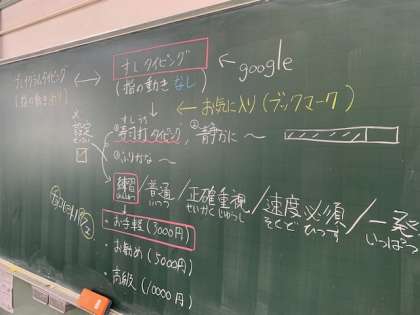 オレタイピング
(指の動き なし)
← google
プレイグラムタイピング
(指の動きあり)
↔
↓
← お気に入り(ブックマーク)
すしうち
①寿司打タイピング, ②静かに 〜
③ふりかな〜
設定
練習/普通/正確重視/速度必須/一発
れんしゅう ふつう せいかくじゅうし そくどひっす いっぱつ
↓
・お手軽(3000円)
・お勧め(5000円)
・高級(10000円)